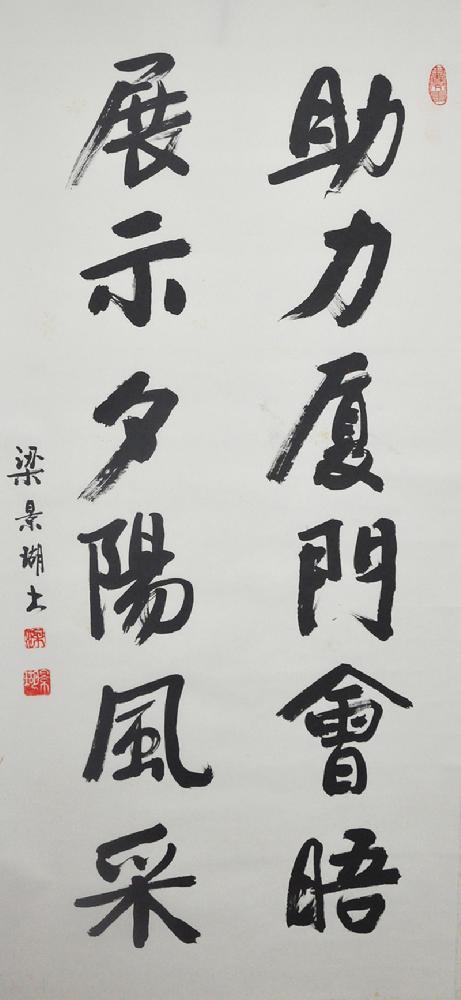 助力厦門會晤
展示夕陽風采
梁景湖书